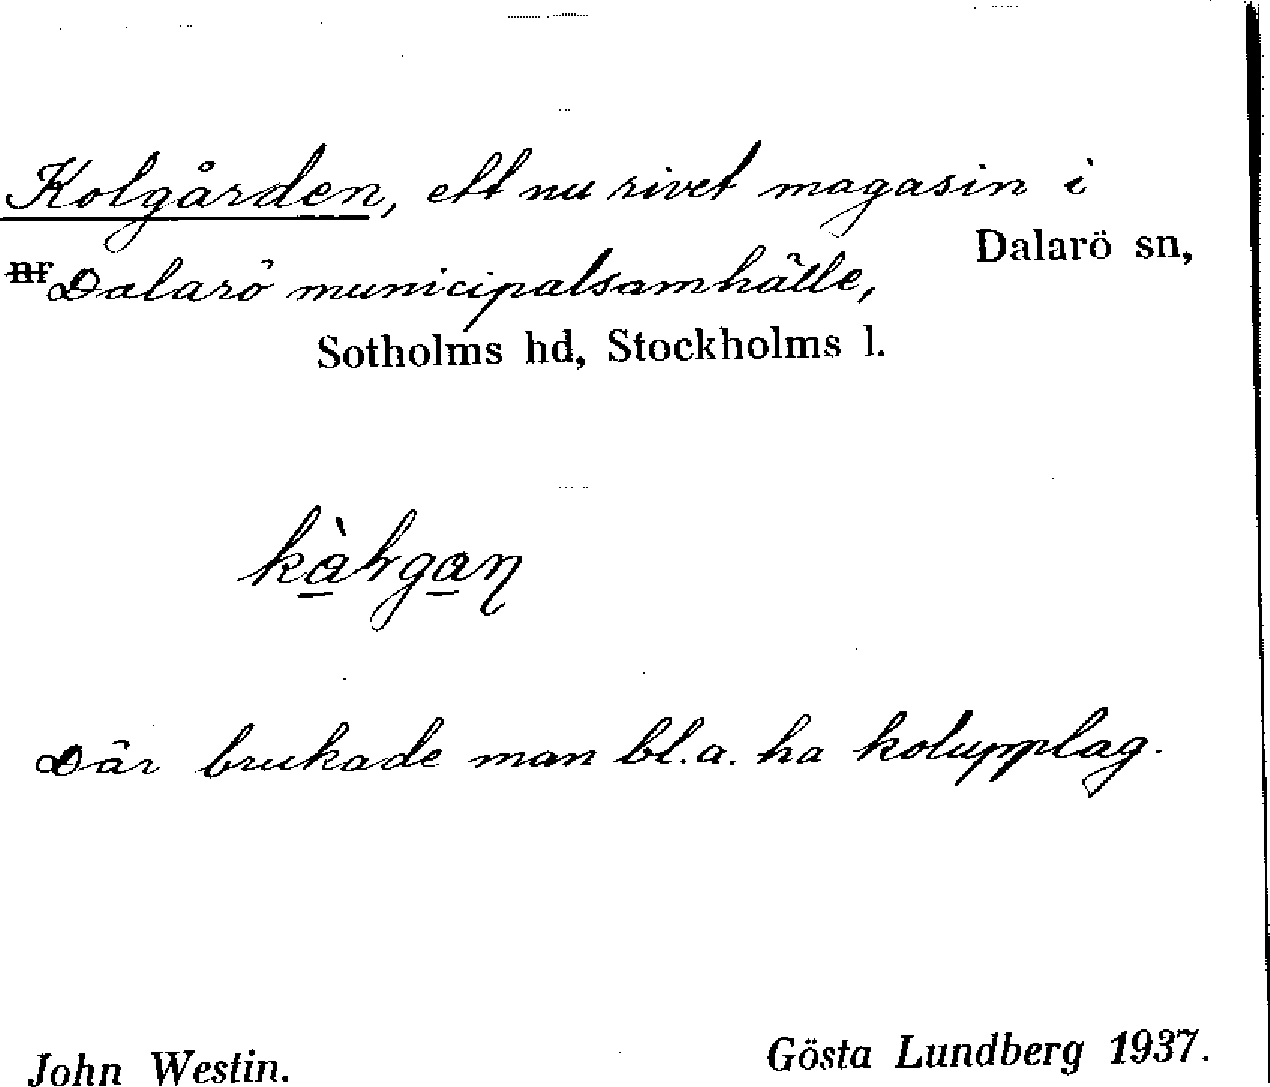 Kolgården, ett nu rivet magasin i
Dalarö sn,
nr Dalarö municipalsamhälle,
Sotholms hd, Stockholms l.
Där brukade man bl.a. ha kolupplag.
John Westin. Gösta Lundberg 1937.